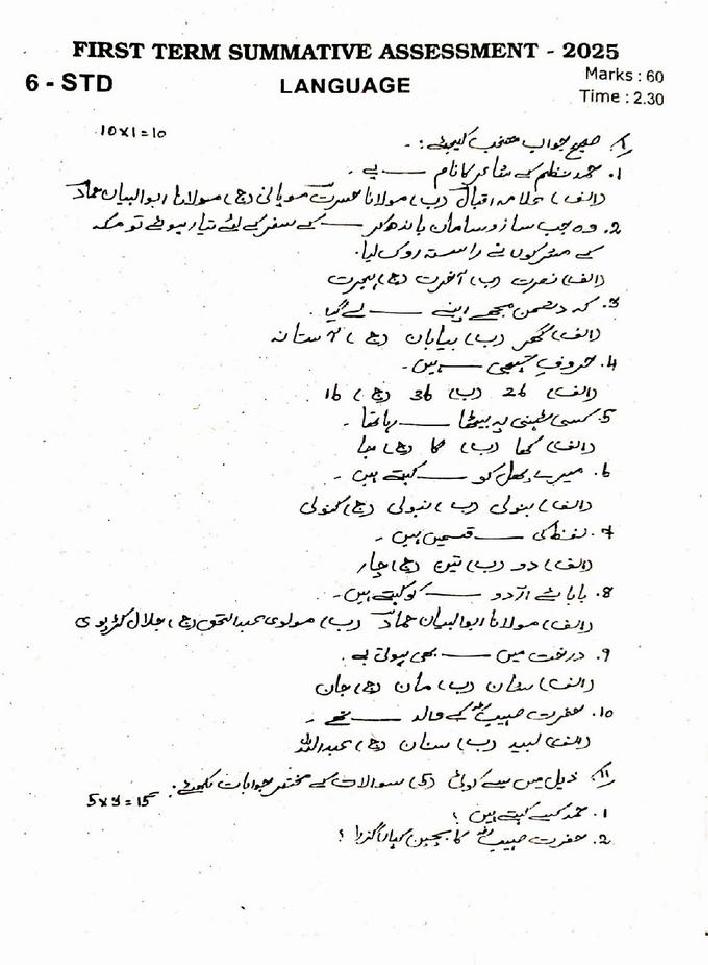 FIRST TERM SUMMATIVE ASSESSMENT - 2025
6 - STD
LANGUAGE
Marks : 60
Time : 2.30
I) صحیح جواب منتخب کیجئے :- 10x1=10
1. حمد نظم کے شاعر کا نام ــــ ہے ۔
(الف) علامہ اقبال (ب) مولانا حسرت موہانی (ج) مولانا ابوالبیان حماد
2. وہ جب ساز و سامان باندھ کر ــــ کے سفر کے لئے تیار ہوئے تو مکہ
کے مشرکوں نے راستہ روک لیا۔
(الف) نصرت (ب) آخرت (ج) ہجرت
3. کہ دشمن مجھے اپنے ــــ لے گیا ۔
(الف) گھر (ب) بیابان (ج) آستانہ
4. حروفِ تہجی ــــ ہیں۔
(الف) 26 (ب) 36 (ج) 16
5. کسی ٹہنی پہ بیٹھا ــــ رہا تھا ۔
(الف) کھا (ب) گا (ج) جا
6. میرے پھل کو ــــ کہتے ہیں ۔
(الف) بنولی (ب) نبولی (ج) کنولی
7. لفظ کی ــــ قسمیں ہیں ۔
(الف) دو (ب) تین (ج) چار
8. بابائے اردو ــــ کو کہتے ہیں ۔
(الف) مولانا ابوالبیان حماد (ب) مولوی عبدالحق (ج) جلال کڑپوی
9. درخت میں ــــ بھی ہوتی ہے ۔
(الف) (ب) مان (ج) جان
10. حضرت حبیبؓ کے والد ــــ تھے ۔
(الف) لبید (ب) سنان (ج) عبداللہ
II) ذیل میں سے کوئی (5) سوالات کے مختصر جوابات لکھئے : 5x3=15
1. حمد کسے کہتے ہیں ؟
2. حضرت حبیبؓ کا بچپن کہاں گذرا ؟